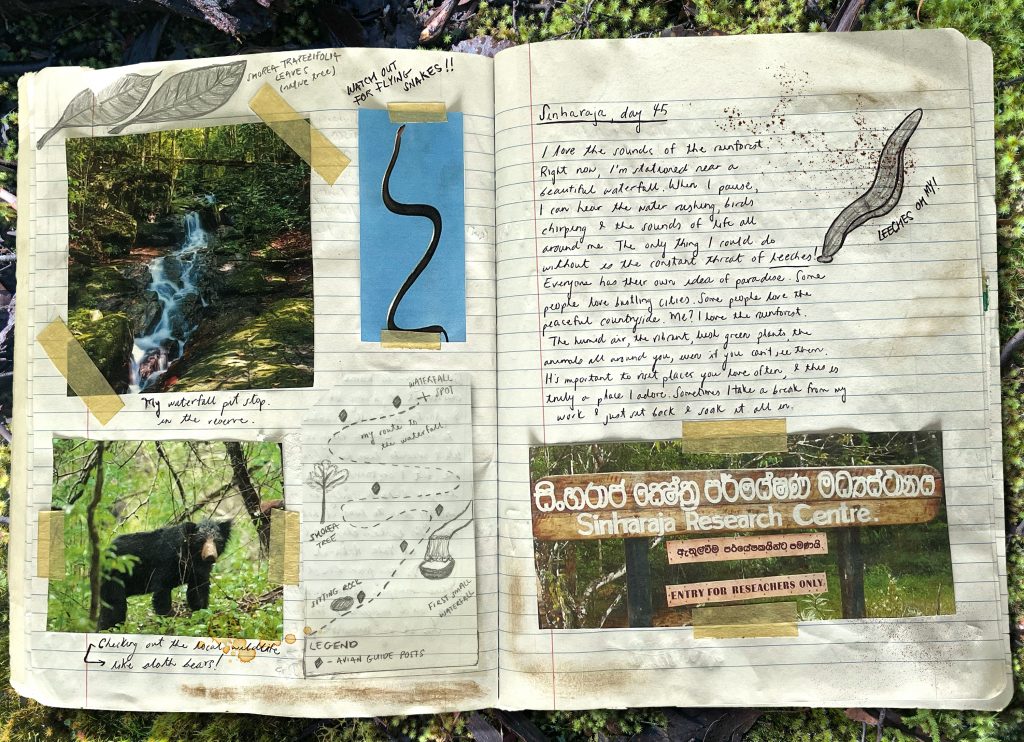 SHOREA TRAPEZIFOLIA
LEAVES
(native tree)
WATCH OUT
FOR FLYING
SNAKES!!
My waterfall pit stop.
in the reserve.
Checking out the local wildlife
like sloth bears!
WATERFALL
SPOT
my route to
the waterfall
SHOREA
TREE
SITTING ROCK
FIRST SMALL
WATERFALL
LEGEND
- AVIAN GUIDE POSTS
Sinharaja, day 45
I love the sounds of the rainforest
Right now, I'm stationed near a
beautiful waterfall. When I pause,
I can hear the water rushing, birds
chirping & the sounds of life all
around me. The only thing I could do
without is the constant threat of leeches!
Everyone has their own idea of paradise. Some
people love bustling cities. Some people love the
peaceful countryside. Me? I love the rainforest.
The humid air, the vibrant, lush green plants, the
animals all around you, even if you can't see them.
It's important to visit places you love often, & this is
truly a place I adore. Sometimes I take a break from my
work & just sit back & soak it all in.
LEECHES OH MY!
සිංහරාජ ක්ෂේත්‍ර පර්යේෂණ මධ්‍යස්ථානය
Sinharaja Research Centre.
ඇතුල්වීම පර්යේෂකයින්ට පමණයි
ENTRY FOR RESEACHERS ONLY